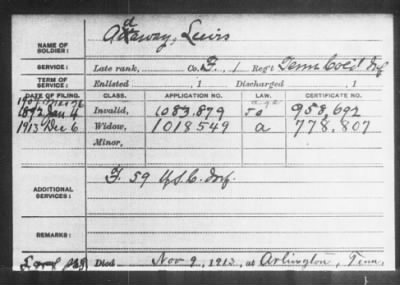 NAME OF SOLDIER: Attaway, Lewis
SERVICE: Late rank, Co. F, 1 Reg't Tenn Col'd Inf
TERM OF SERVICE: Enlisted , 1 Discharged , 1
DATE OF FILING. CLASS. APPLICATION NO. LAW. CERTIFICATE NO.
1892 Jan 4 Invalid, 1083.879 958,692
1913 Dec 6 Widow, 1018549 a 778.807
Minor,
ADDITIONAL SERVICES: F. 59 U.S.C. Inf.
REMARKS:
Died Nov 9, 1913, at Arlington, Tenn,